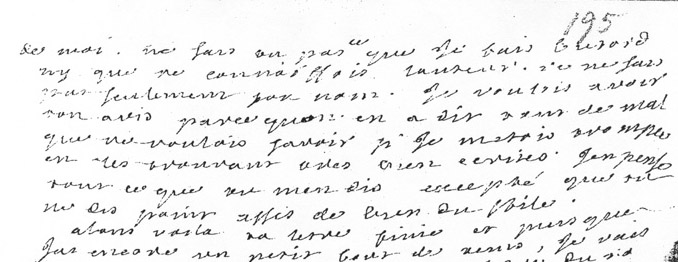 195
de moi. ne sais tu pas que je
ny que ne connoissois lauteur. je ne sais
pas seulement son nom. je voulois avoir
ton avis parcequon en a dit tant de mal
que je voulois savoir si je metois trompée
en les trouvant asses bien ecrites. jen pense
tout ce que tu men dis excepté que tu
ne dis point assés de bien du stile.
alons voila ta letre finie et puisque
jai encore un petit bout de tems, je vais